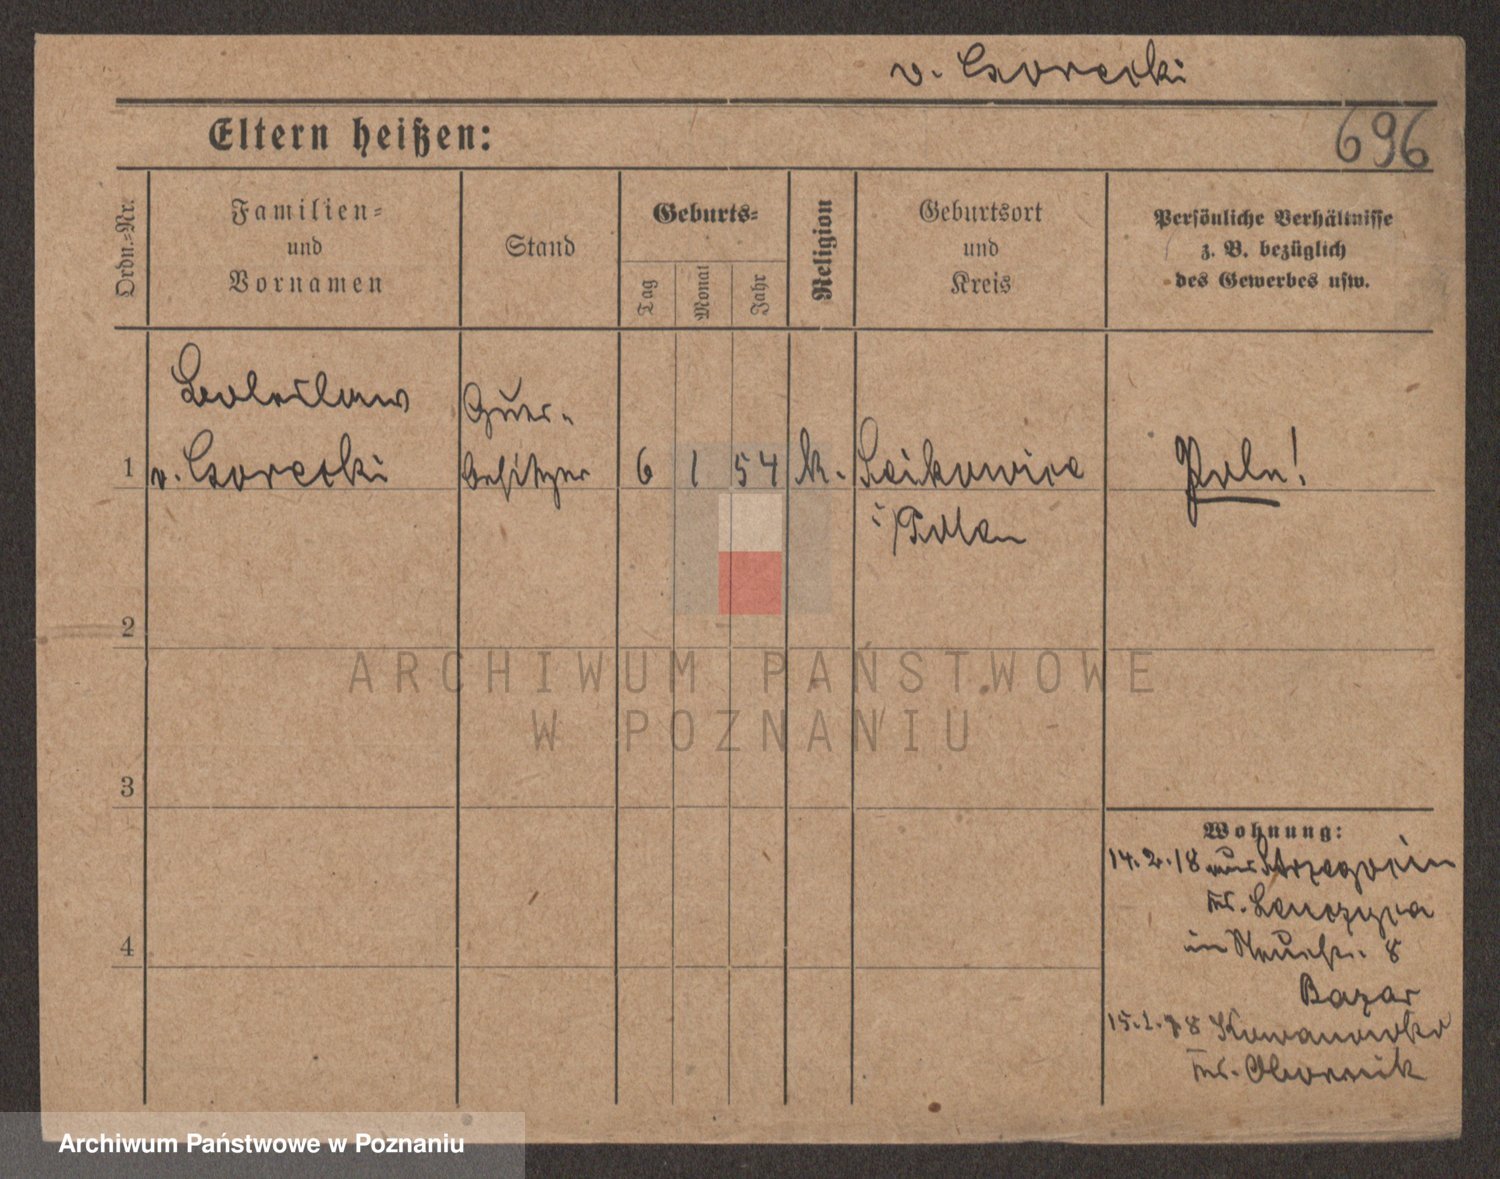 v. Gorecki
Eltern heißen:
696
Ordn.-Nr.
Familien-
und
Vornamen
Stand
Geburts-
Tag
Monat
Jahr
Religion
Geburtsort
und
Kreis
Persönliche Verhältnisse
z. B. bezüglich
des Gewerbes usw.
1
Boleslaw
v. Gorecki
Guts-
besitzer
6
1
54
k.
i/Polen
Pole!
2
3
4
Wohnung:
14.2.18 aus
Kr.
in Neuestr. 8
Bazar
Kowanowko
Kr. Obornik
ARCHIWUM PAŃSTWOWE
W POZNANIU
Archiwum Państwowe w Poznaniu